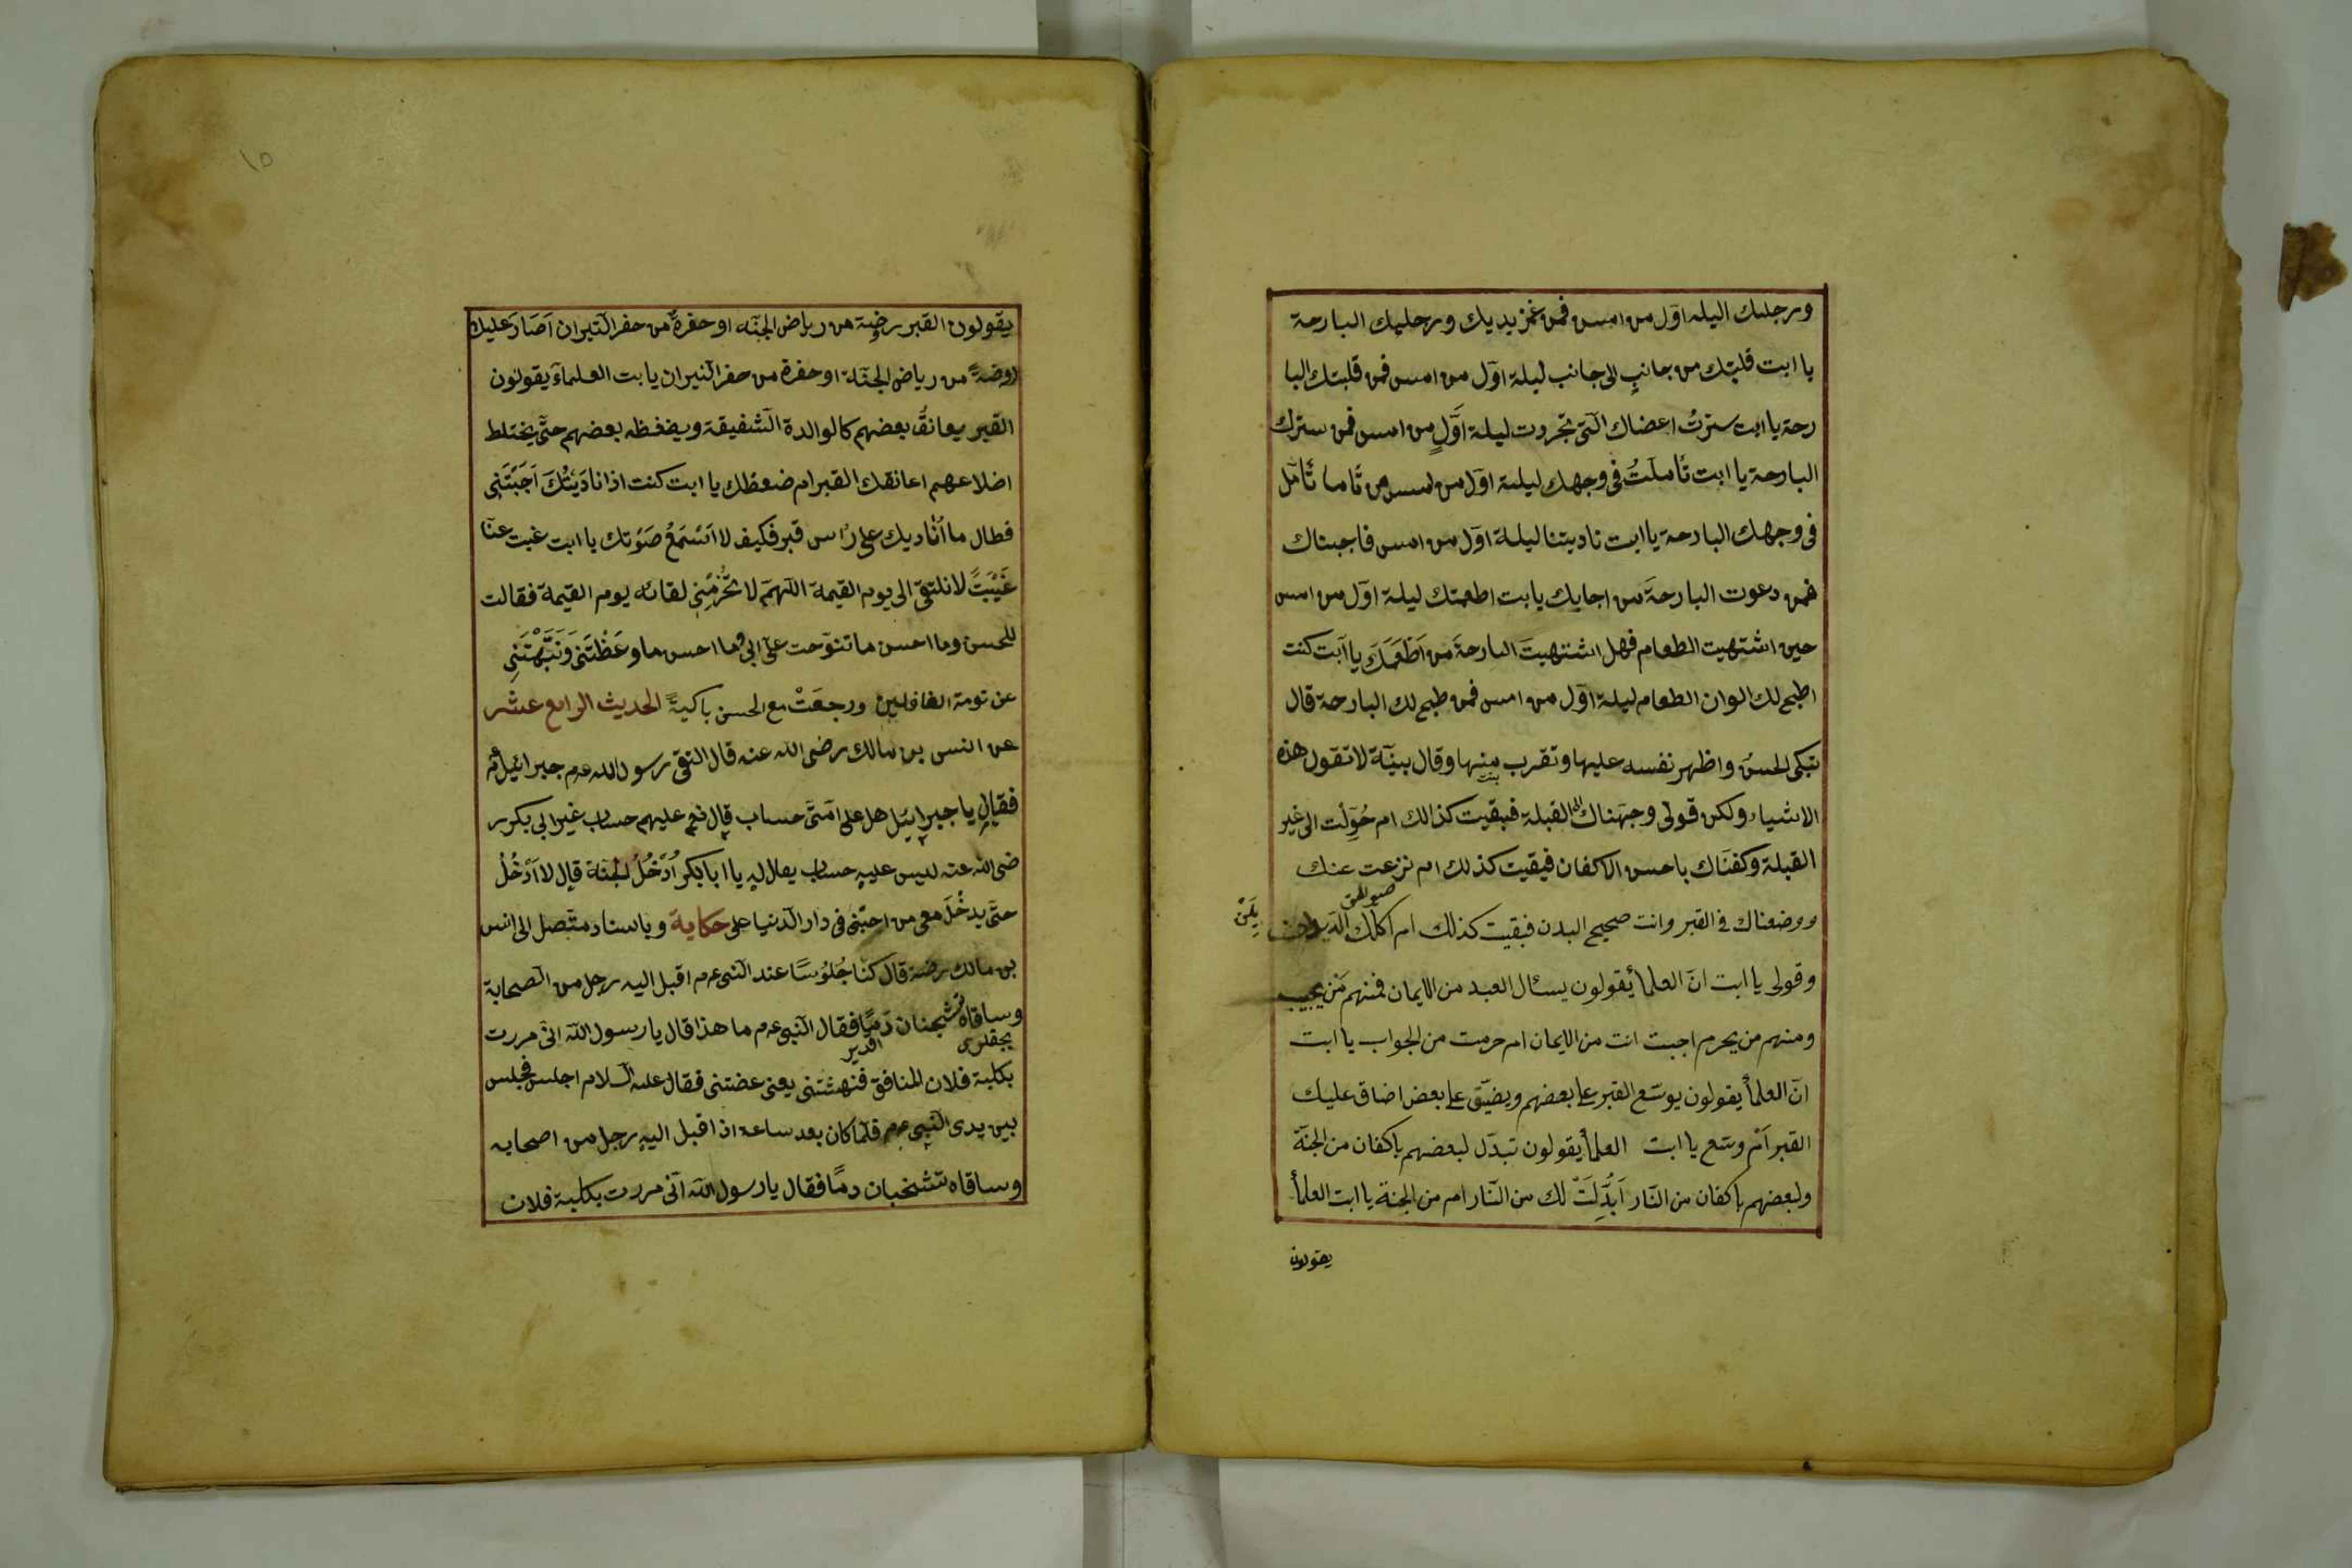 ورجليك اليله اوّل من امس فمن غمز يديك ورجليك البارحة
يا ابت قلبتك من جانبٍ الى جانب ليلة اوّل من امس فمن قلبتك البا
رحة يا ابت سترتُ اعضاك الّتى تجردت ليلة اوّلٍ من امس فمن سترك
البارحة يا ابت تاُملتُ فى وجهك ليلة اوّل من امس من تاُمل
فى وجهك البارحة يا ابت ناديتنا ليلة اوّل من امس فاجبناك
فمن دعوت البارحةَ من اجابك يابت اطعمتك ليلة اوّل من امس
حين اشتهيت الطعام فهل اشتهيتَ البارحةَ من اَطْعَمَكَ يا اَبت كنت
اطبخ لك الوان الطعام ليلة اوّل من امس فمن طبخ لك البارحة قال
تبكى الحسنُ واظهر نفسه عليها وتقرب منها وقال بينّة لا تقول هذه
بنت
الاشياء ولكن قولى وجهناك الى القبلة فبقيت كذالك ام حُوِّلْت الى غير
القبلة وكفنّاك باحسن الاكفان فبقيت كذلك ام نزعت عنك
ووضعناك فى القبر وانت صحيح البدن فبقيت كذلك ام اكلك الديدان
وقولى يا ابت انّ العلمأ يقولون يسئال العبد من الايمان فمنهم مَن يجيب
ومنهم من يحرم اجبت انت من الايمان ام حرمت من الجواب يا ابت
انّ العلمأ يقولون يوسّع القبر على بعضهم ويضيّق على بعض اضاق عليك
القبر اَمْ وسّع يا ابت العلمأ يقولون تبدّل لبعضهم باكفان من الجنّة
ولبعضهم باكفان من النّار اَبُدِّلَتْ لك من النّار ام من الجنة يا ابت العلمأ
يقولون
١٥
يقولون القبر رضة من رياض الجنّه او حفرةٌ من حفر النّيران اَصَارَ عليك
روضةً من رياض الجنّة او حفرة من حفر النيران يابت العلماءَ يقولون
القبر يعانقُ بعضهم كالوالدة الشفيقة ويضغطه بعضهم حتّى يختلط
اضلاعهم اعانقك القبر ام ضغطك يا ابت كنت اذا ناديتُكَ اَجَبْتَنِى
فطال ما اُناديك على رأس قبر فكيف لا اَسْتَمَعُ صَوْتك يا ابت غبت عنّا
غَيْبَتً لانلتقى الى يوم القيمة اللّهمّ لا تحُرمْنِى لقائه يوم القيمة فقالت
للحسن وما احسن ما تنوّحت على ابى وما احسن ما وعَظْتَنِى وَنَبَّهْتَنِى
عن نومة الغافلين ورجعَتْ مع الحسن باكيةً الحديث الرابع عشر
عن انس بن مالك رضى الله عنه قال التقى رسول الله عم جبرائيل
فقال يا جبرائيل هل على اُمتى حساب قال نعم عليهم حساب غير ابى بكر ر
ضى الله عنه ليس عليه حساب يقال له يا ابا بكر اُدْخُلُ الجنّة قال لا اَدْخُلُ
حتّى يدخُلَ معى من احبّنى فى دار الدّنيا على حكاية وباسناد متّصل الى انس
بن مالك رضه قال كنّا جُلُوْسًا عند النّبى عم اقبل اليه رجل من الصحابة
وساقاه تشجنان دَمًا فقال النّبى عم ما هذا قال يا رسول الله انّى مررت
بكلبة فلان المنافق فنهشتنى يعنى عضتنى فقال عليه السلام اجلس فجلس
بين يدى النّبى عم فلمّا كان بعد ساعة اذا قبل اليه رجل من اصحابه
وساقاه تشخبان دمًا فقال يا رسول الله انّى مررت بكلبة فلان